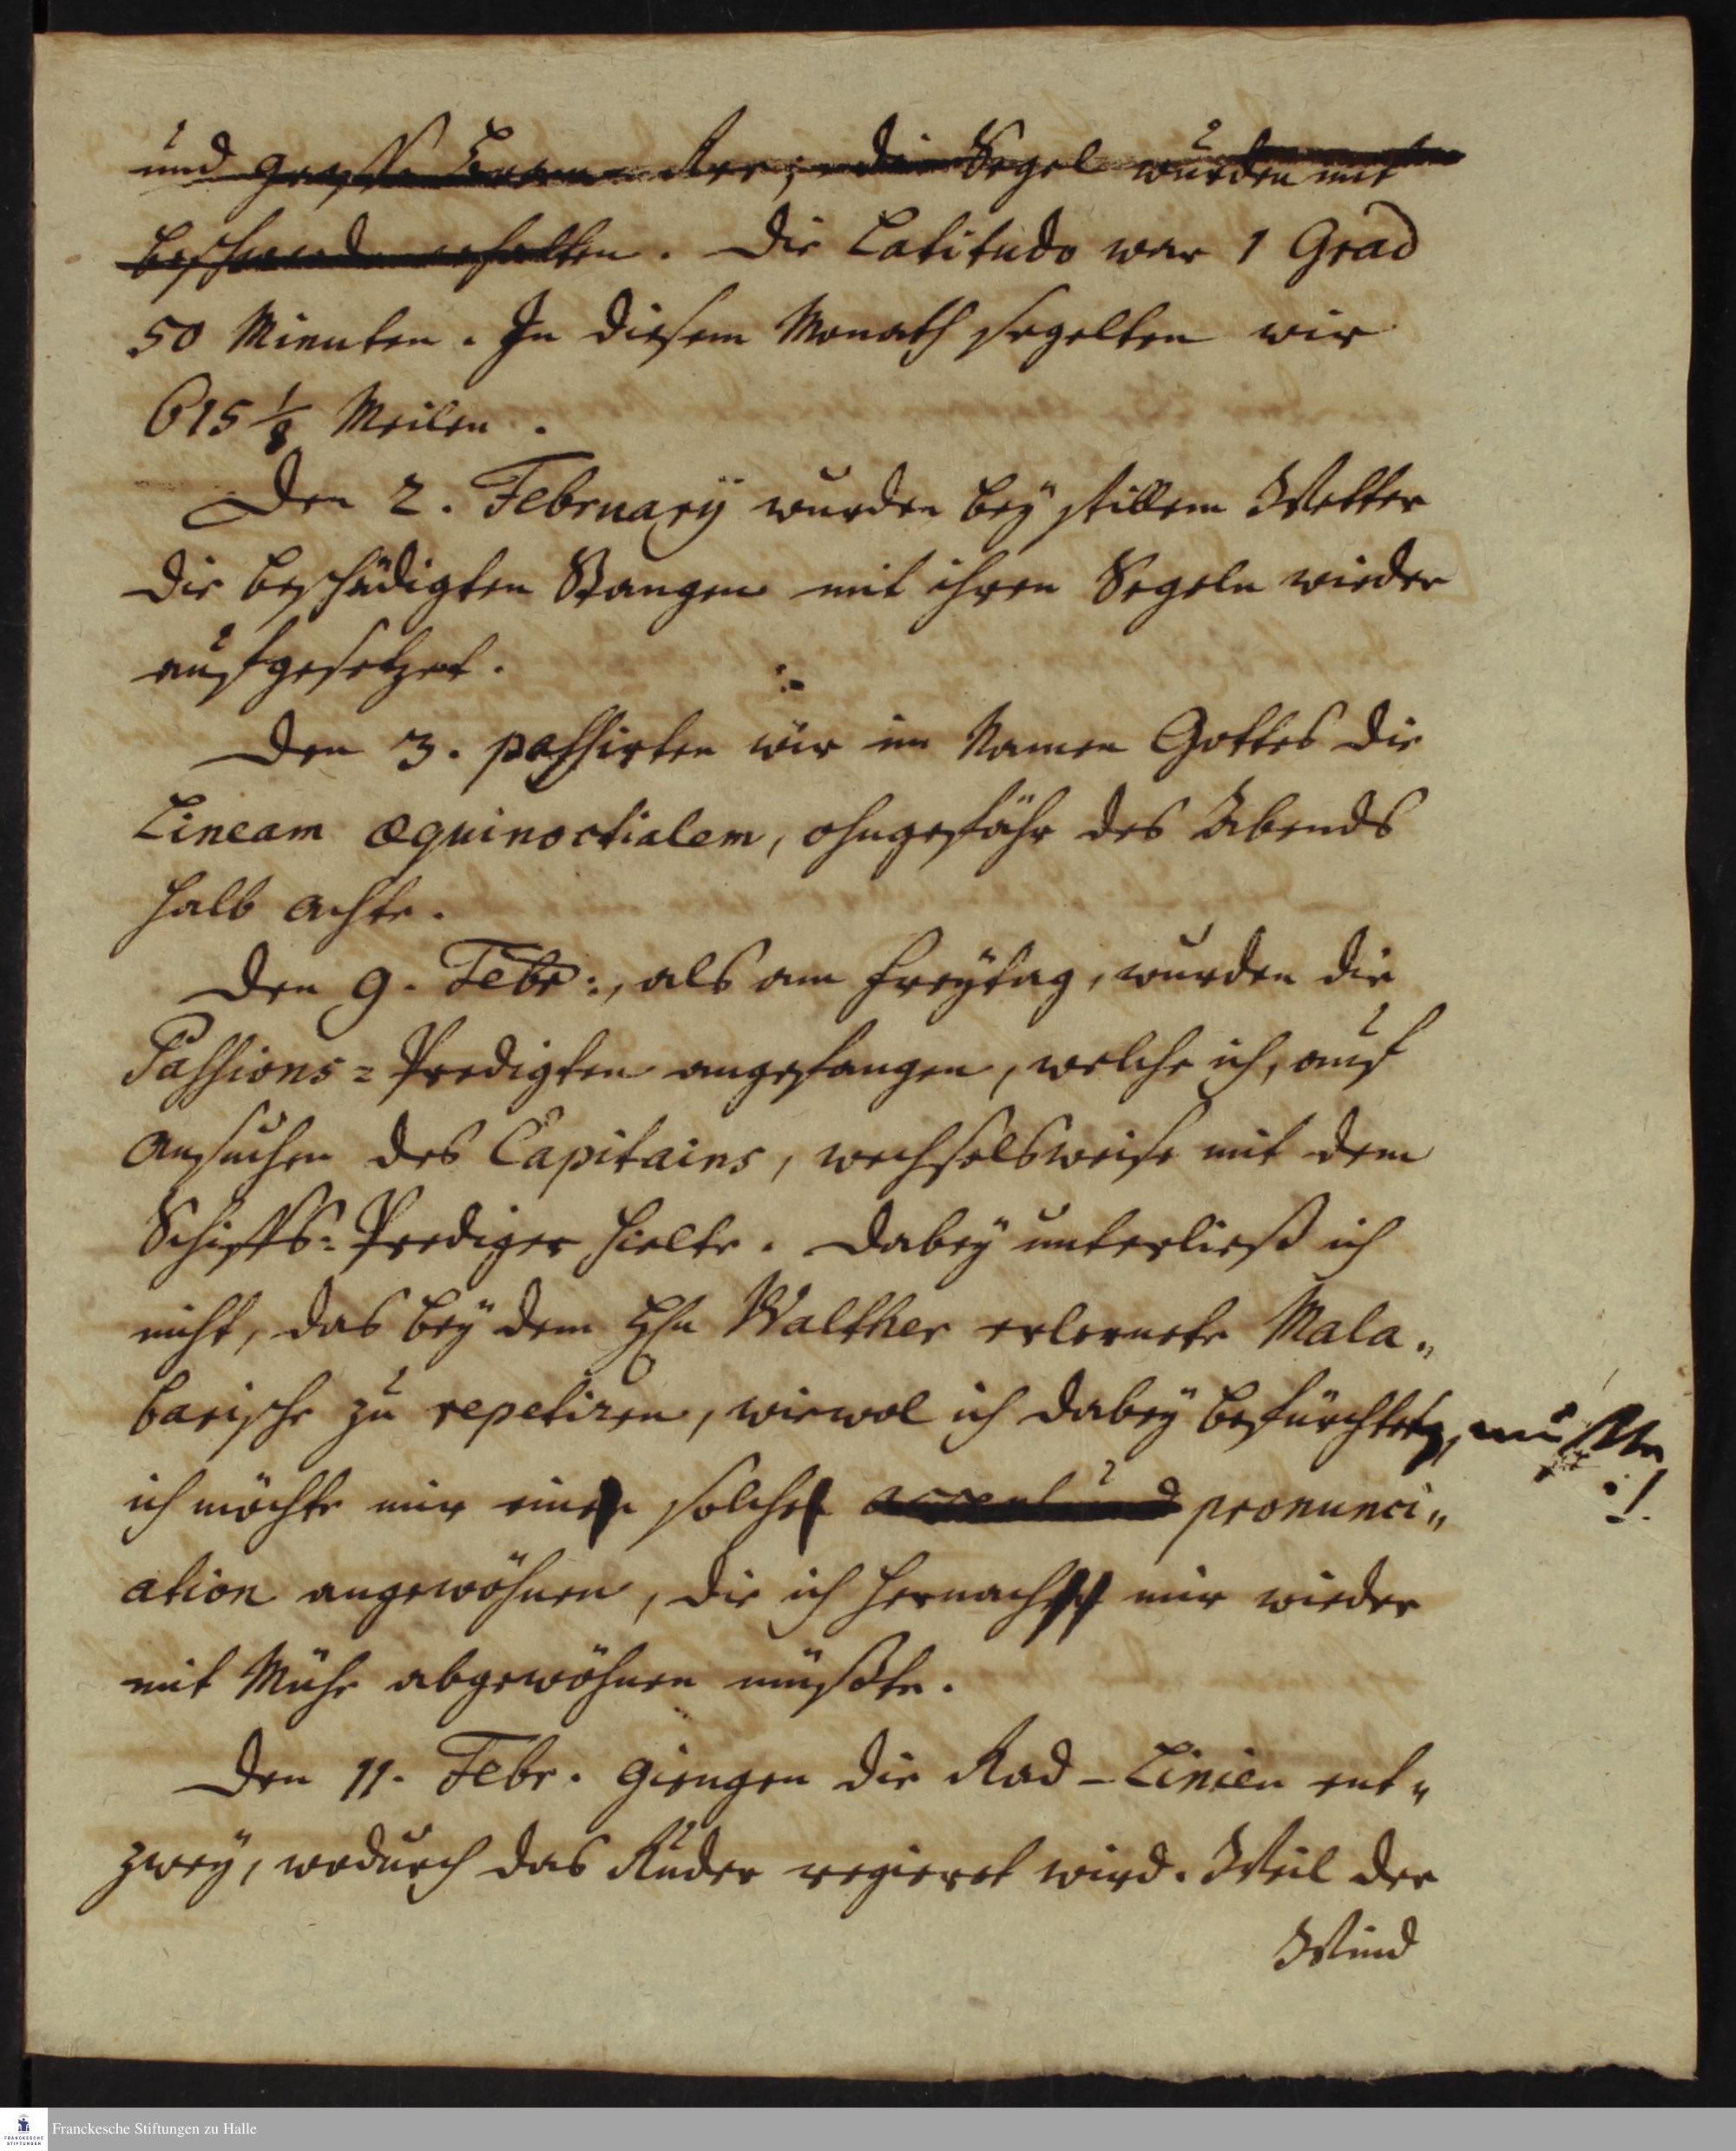 und große Bram-Ree; die Segel wurden mit
beschwerde erhalten. Die Latitudo war 1 Grad
50 Minuten. In diesem Monath segelten wir
615 1/8 Meilen.
Den 2. Februarÿ wurden beÿ stillem Wetter
die beschädigten Stangen mit ihren Segeln wieder
aufgesetzet.
Den 3. passirten wir im Namen Gottes die
Lineam æquinoctialem, ohngefähr des Abends
halb achte.
Den 9. Febr:, als am Freÿtag, wurden die
Passions=Predigten angefangen, welche ich, auf
Ansuchen des Capitains, wechselsweise mit dem
Schiffs=Prediger hielte. Dabeÿ unterließ ich
nicht, das beÿ dem Hn Walther erlernete Mala„
barische zu repetiren, wiewol ich dabeÿ befürchten mußte
ich möchte mir eine solche accent und pronunci„
ation angewöhnen, die ich hernach mir wieder
mit Mühe abgewöhnen müßte.
Den 11. Febr. giengen die Rad-Linien ent„
zweÿ, wodurch das Ruder regieret wird. Weil der
Wind
Franckesche Stiftungen zu Halle